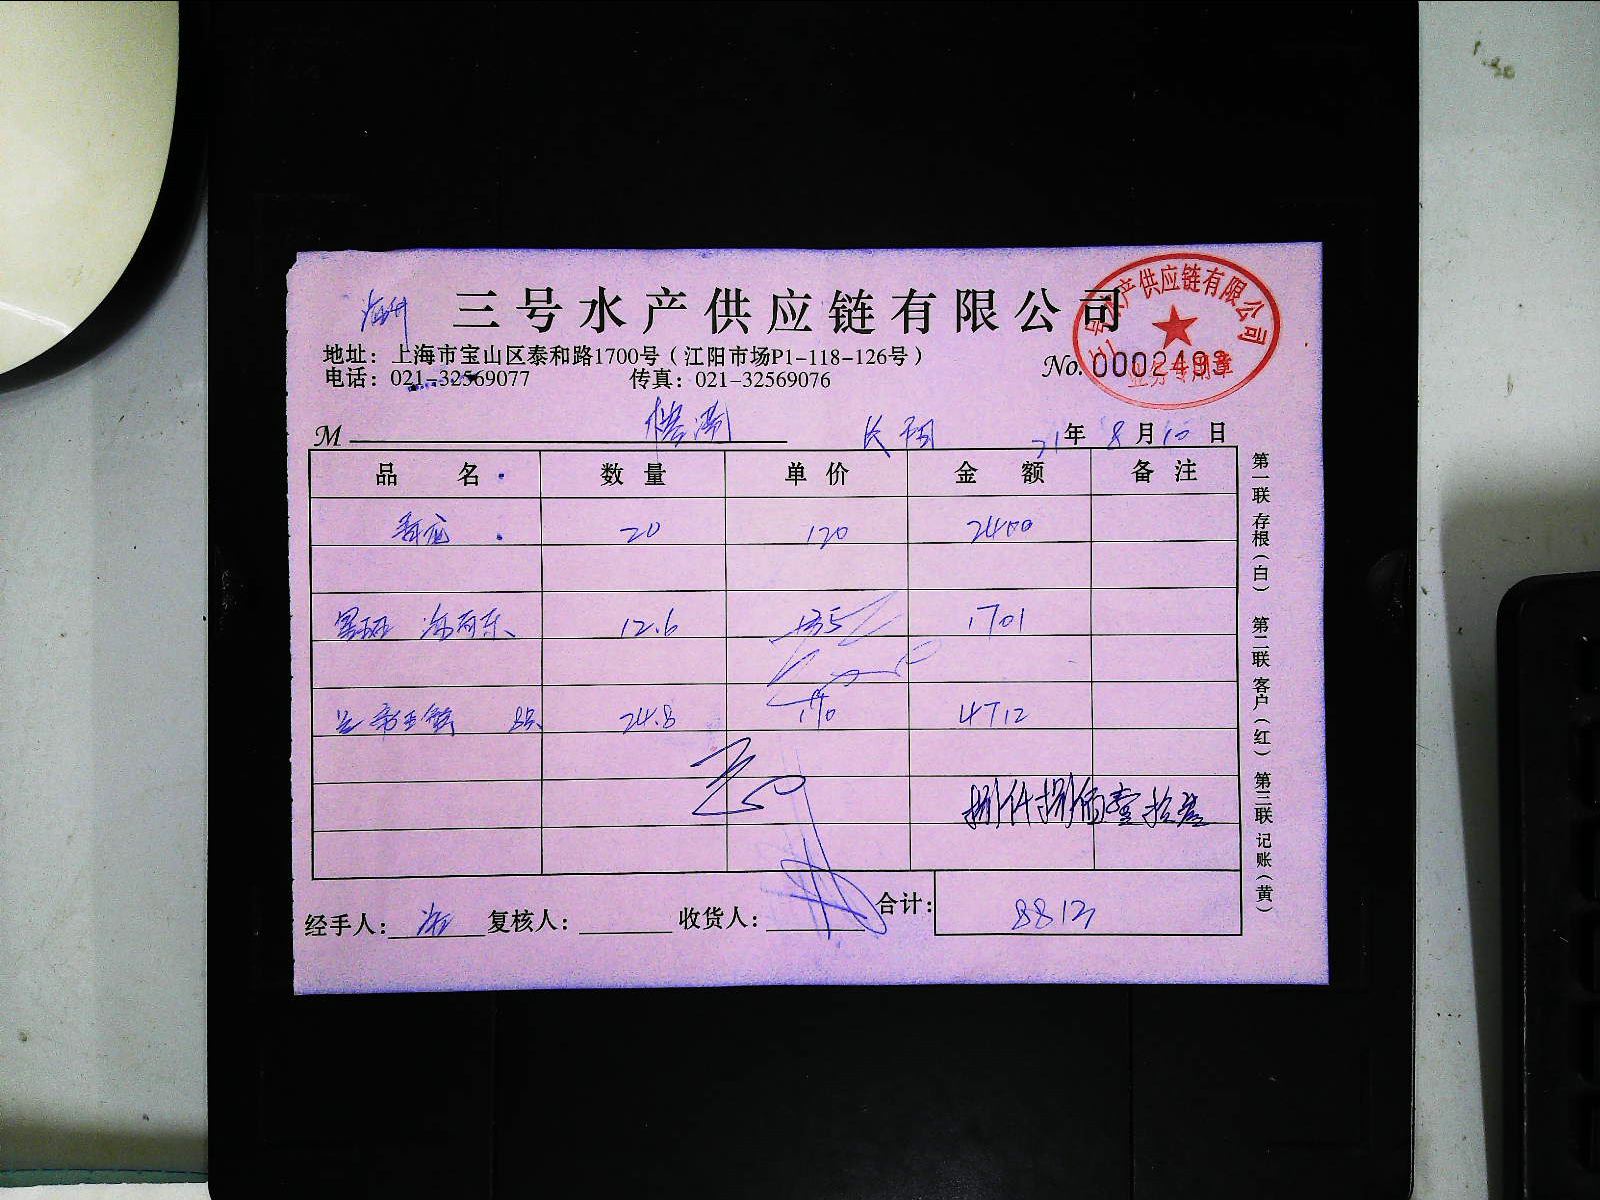 三号水产供应链有限公司
三号水产供应链有限公司
业务专用章
地址：上海市宝山区泰和路1700号（江阳市场P1-118-126号）
电话：021-32569077 传真：021-32569076
No. 0002493
M 21年 8月10日
品名 数量 单价 金额 备注
20 120 2400
12.6 135 1701
24.8 190 4712
捌仟捌佰壹拾叁
经手人： 复核人： 收货人： 合计： 8813
第一联 存根（白） 第二联 客户（红） 第三联 记账（黄）